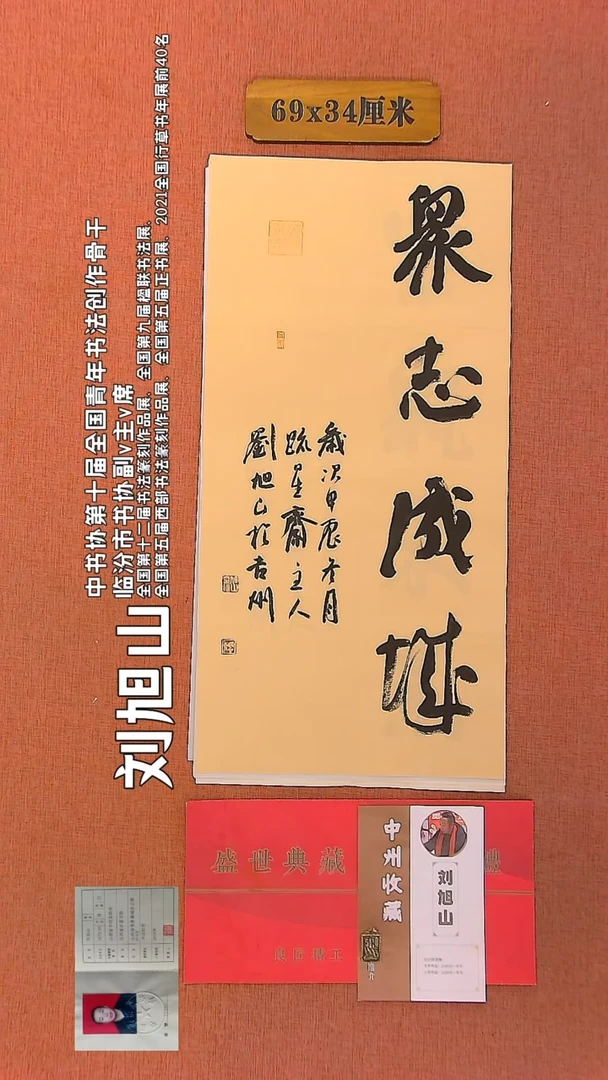 69x34厘米
眾志成城
歲次甲辰冬月
疏星齋主人
劉旭山於吉州
刘旭山
中书协第十届全国青年书法创作骨干
临汾市书协副v主v席
全国第十二届书法篆刻作品展、全国第九届楹联书法展、
全国第五届西部书法篆刻作品展、全国第五届正书展、2021全国行草书年展前40名
盛世典藏
中州收藏
刘旭山
简介